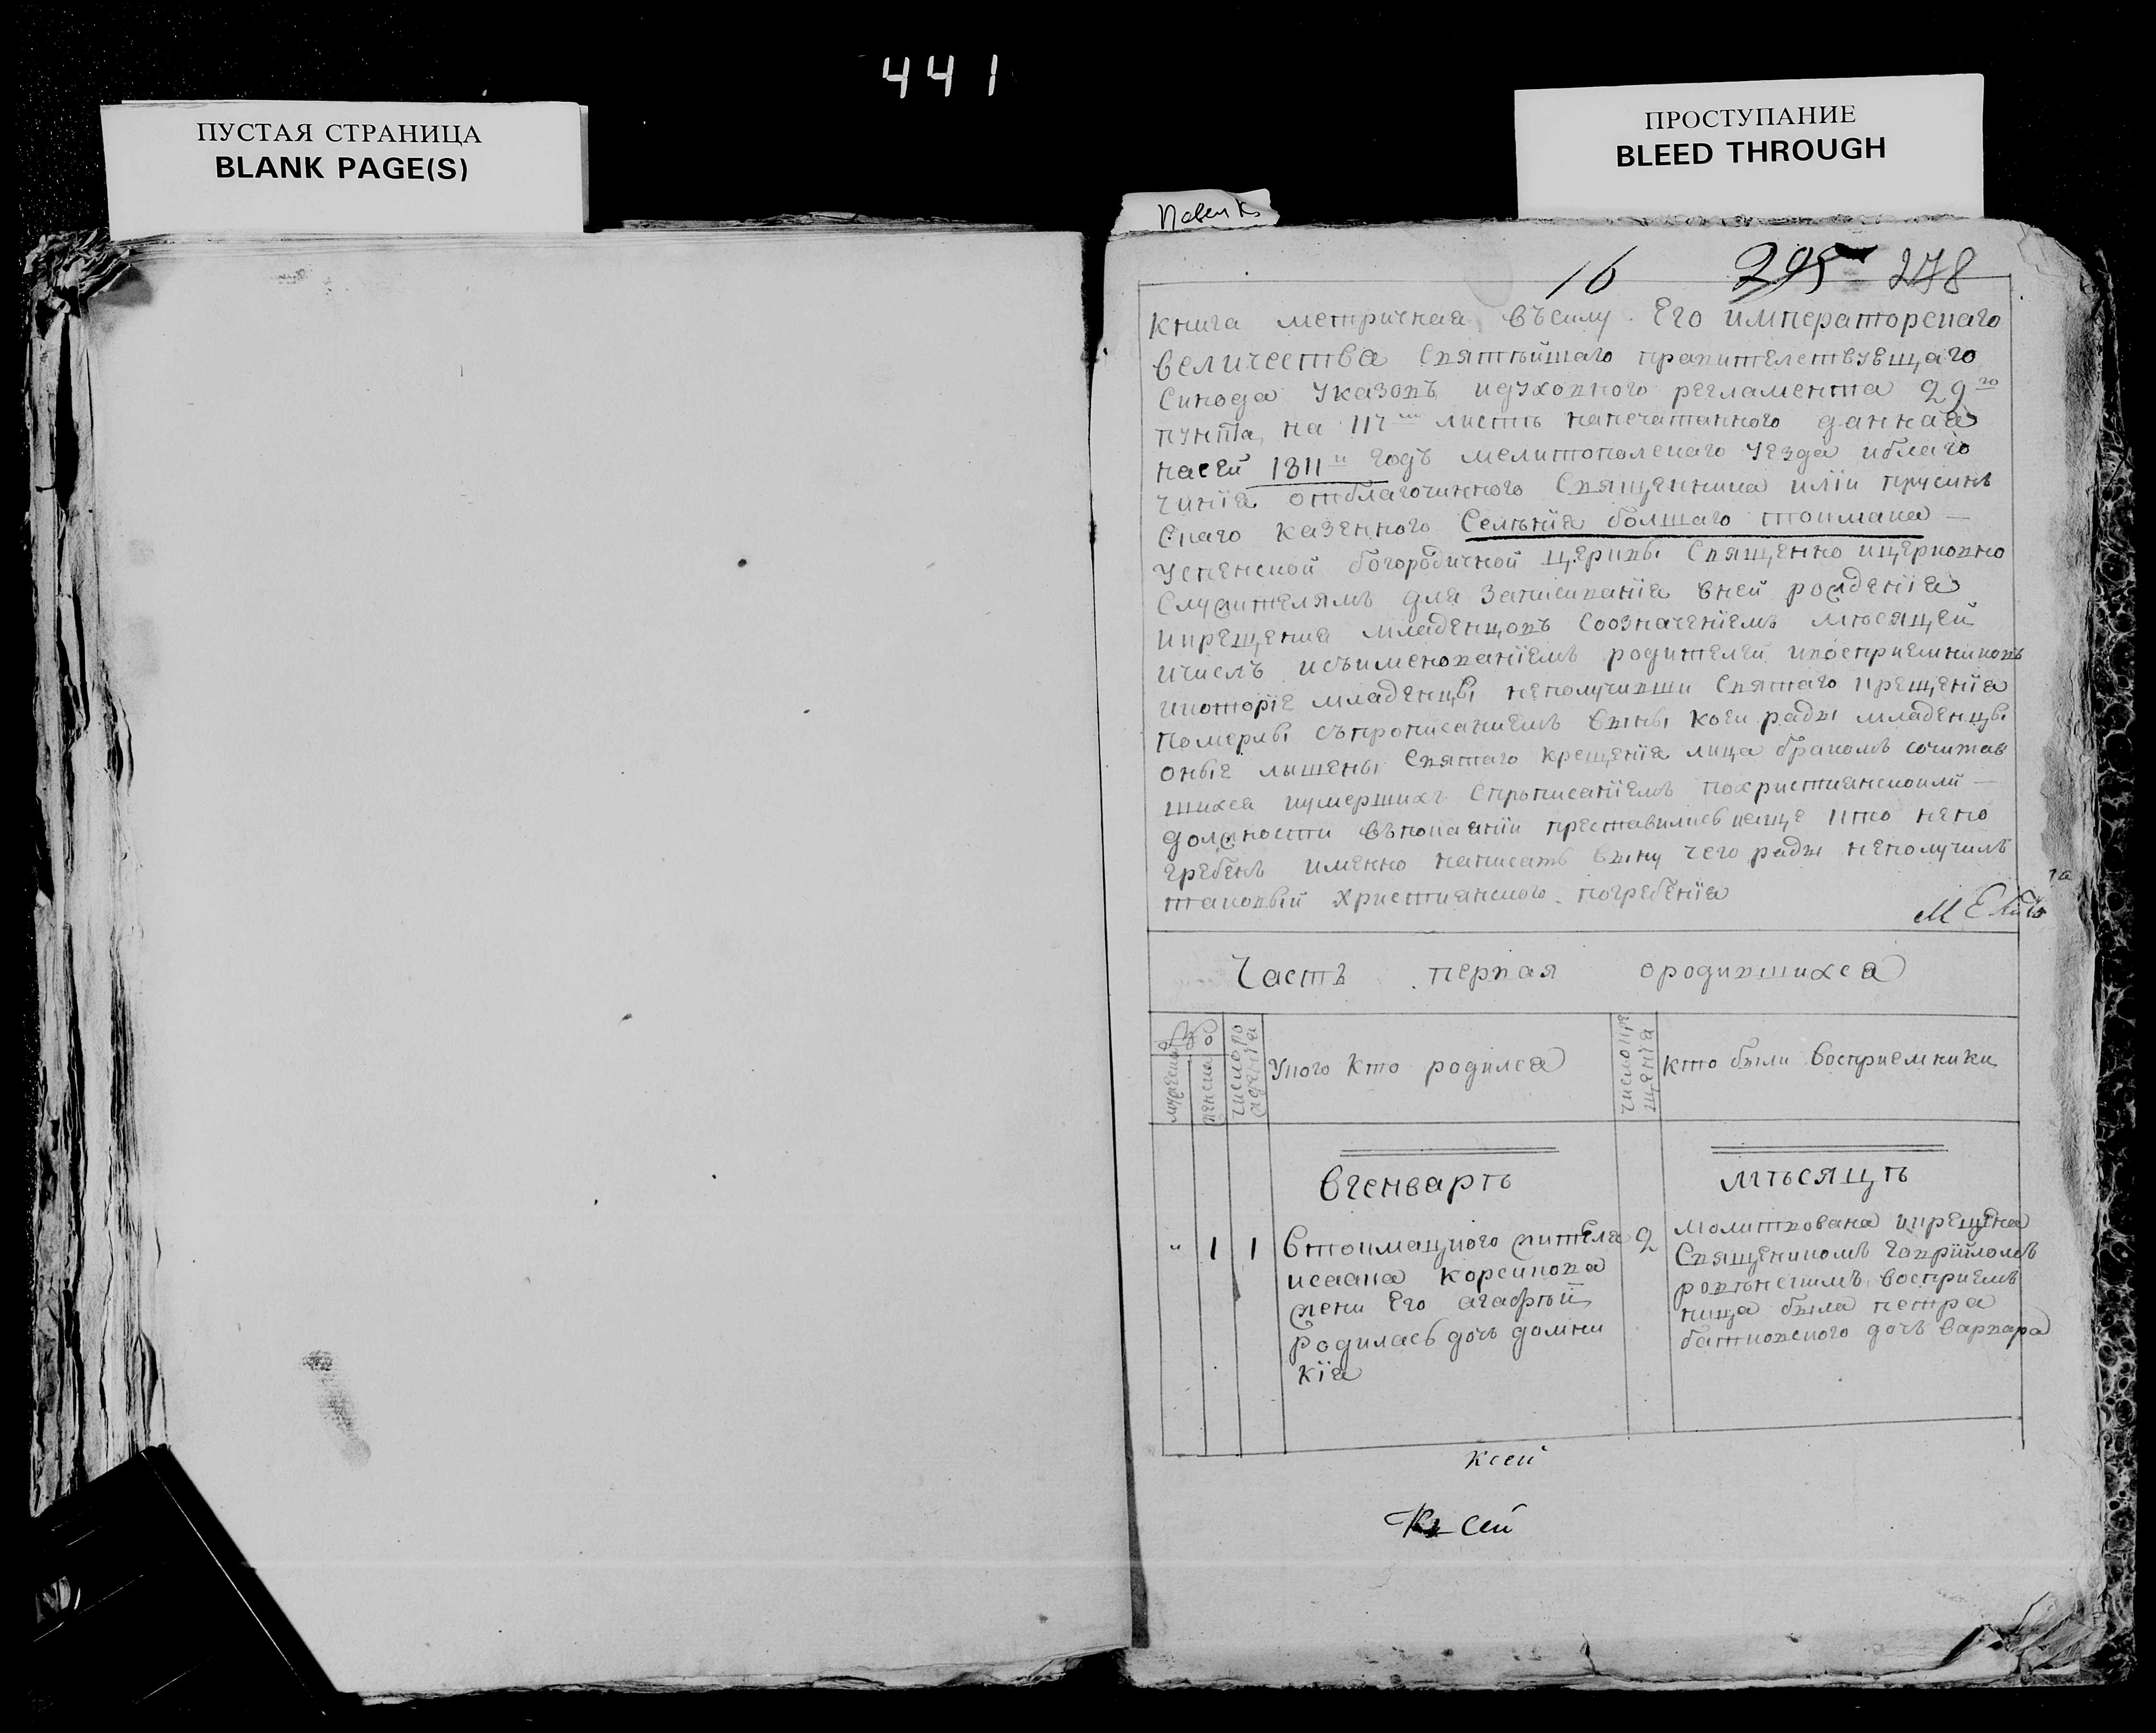 441
ПУСТАЯ СТРАНИЦА
BLANK PAGE(S)
ПРОСТУПАНИЕ
BLEED THROUGH
16 295 278
Книга метричная въсилу Его императорскаго
величества Святѣйшаго правителствующаго
Синода указовъ идуховного регламента 29го
пункта на 117 листѣ напечатанного данная
насей 1811й годъ мелитополскаго уезда иблаго
чинїя отблагочинного Священника илїи
скаго казенного Селѣнїя болшаго токмака
успенской богородичной церквы Священно ицерковно
Служителямъ для записиванїя вней рожденїя
икрещения младенцовъ Соозначенїемъ мѣсяцей
ичислъ исъименованїемъ родителей ивосприемниковъ
икоторїе младенцы неполучивши Святаго крещенїя
померлы съпрописаниемъ вины коеи рады младенцы
оные лышены Святаго крещенїя лица бракомъ сочитав
шихся иумершихъ Спрописанїемъ похристианскоили
должности въпокаянїи преставились иеще кто непо
гребенъ именно написать вину чего рады неполучилъ
таковый христианского погребенїя
Часть первая ородившихся
мужеска
женска
число ро
жденїя
Укого Кто родился
число кре
щенїя
кто были восприемники
Вгенварѣ мѣсяцѣ
" 1 1 Втокмацкого жителя 2
исаака корсикова
жени Его агафїи
родилась дочь домни
кїя
молитвована икрещена
Священикомъ гаврїиломъ
ровѣнскимъ восприем
ница была петра
батковского дочь варвара
ксей
Къ сей